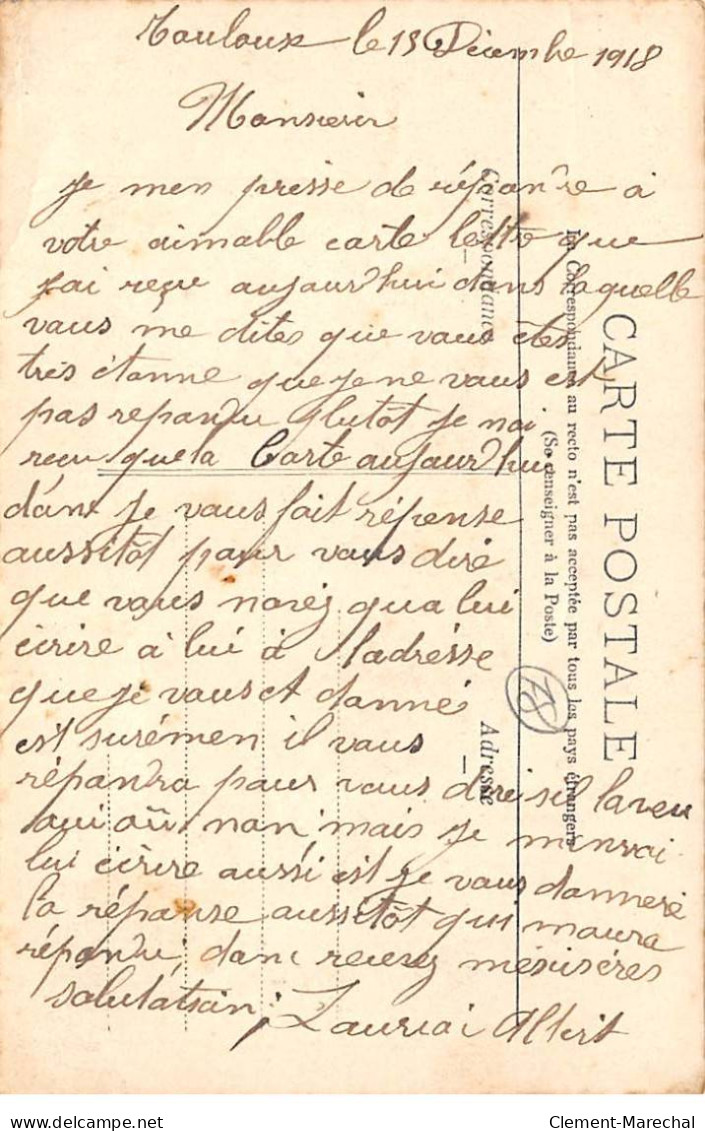 Toulouse le 13 Décembre 1918
Monsieur
Je men presse de répondre a
votre aimable carte lettre que
jai reçu aujourd'hui dans laquelle
vous me dites que vous êtes
très étonne que je ne vous est
pas repondu plutôt je nai
reçu que la Carte aujourd'hui
donc je vous fait réponse
aussitôt pour vous dire
que vous norez qua lui
écrire à lui à ladrésse
que je vous et donné
est surémen il vous
répondra pour vous dire sil la veu
oui où non mais je
lui écrire aussi est je vous donneré
la réponse aussitôt qui moura
répondu donc recevez mésisères
salutation; Lauriai Albert
CARTE POSTALE
La Correspondance au recto n'est pas acceptée par tous les pays étrangers
(Se renseigner à la Poste)
Correspondance
Adresse
78
delcampe.net
Clement-Marechal